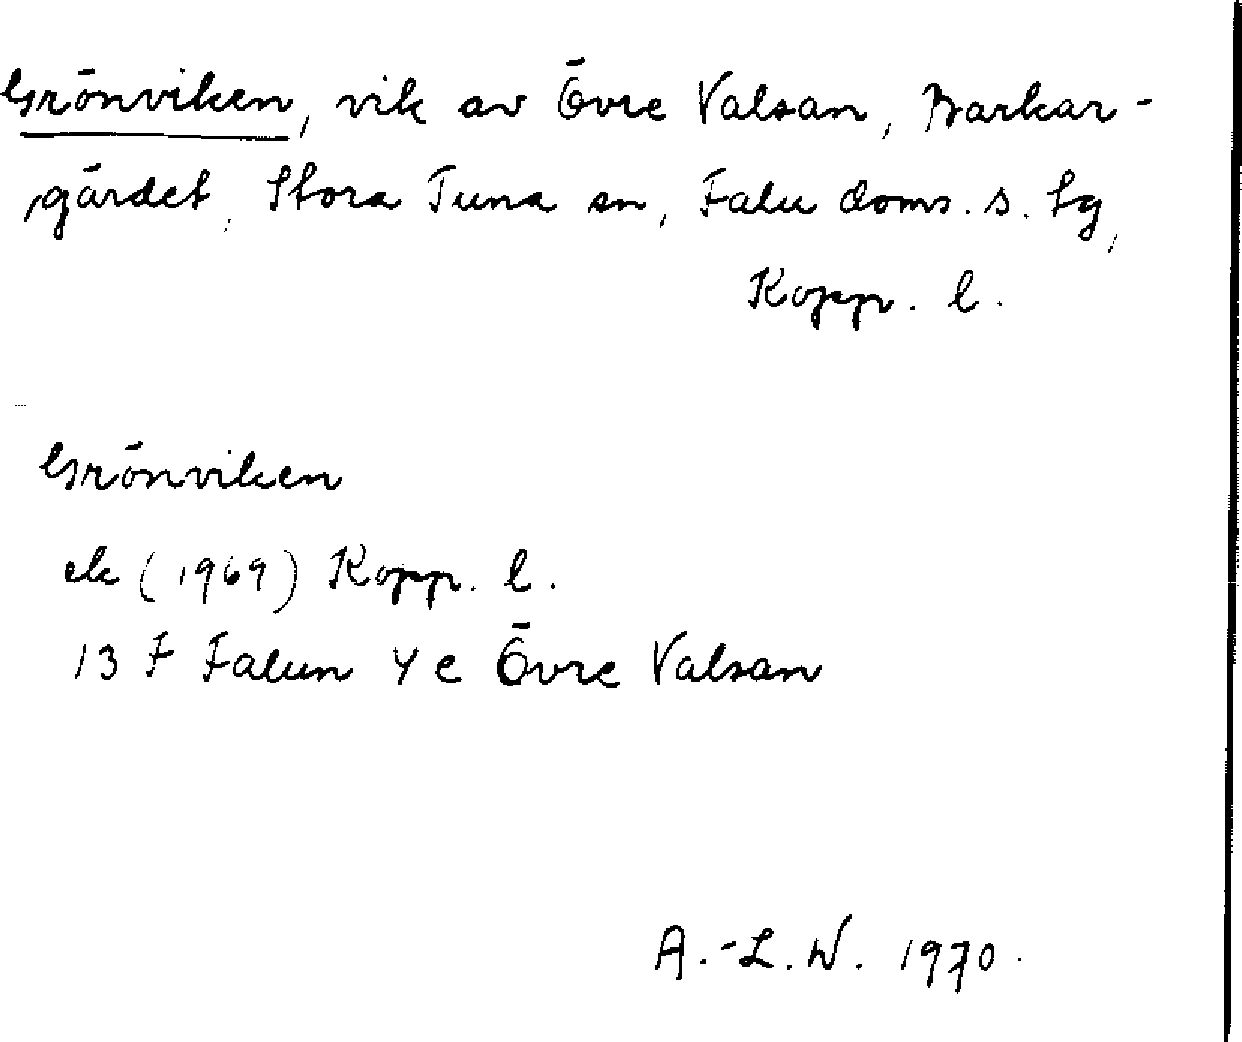 Grönviken, vik av Övre Valsan, Barkar-
gärdet, Stora Tuna sn, Falu doms. s. tg,
Kopp. l.
Grönviken
ek (1969) Kopp. l.
13 F Falun 4 e Övre Valsan
A.-L. W. 1970.